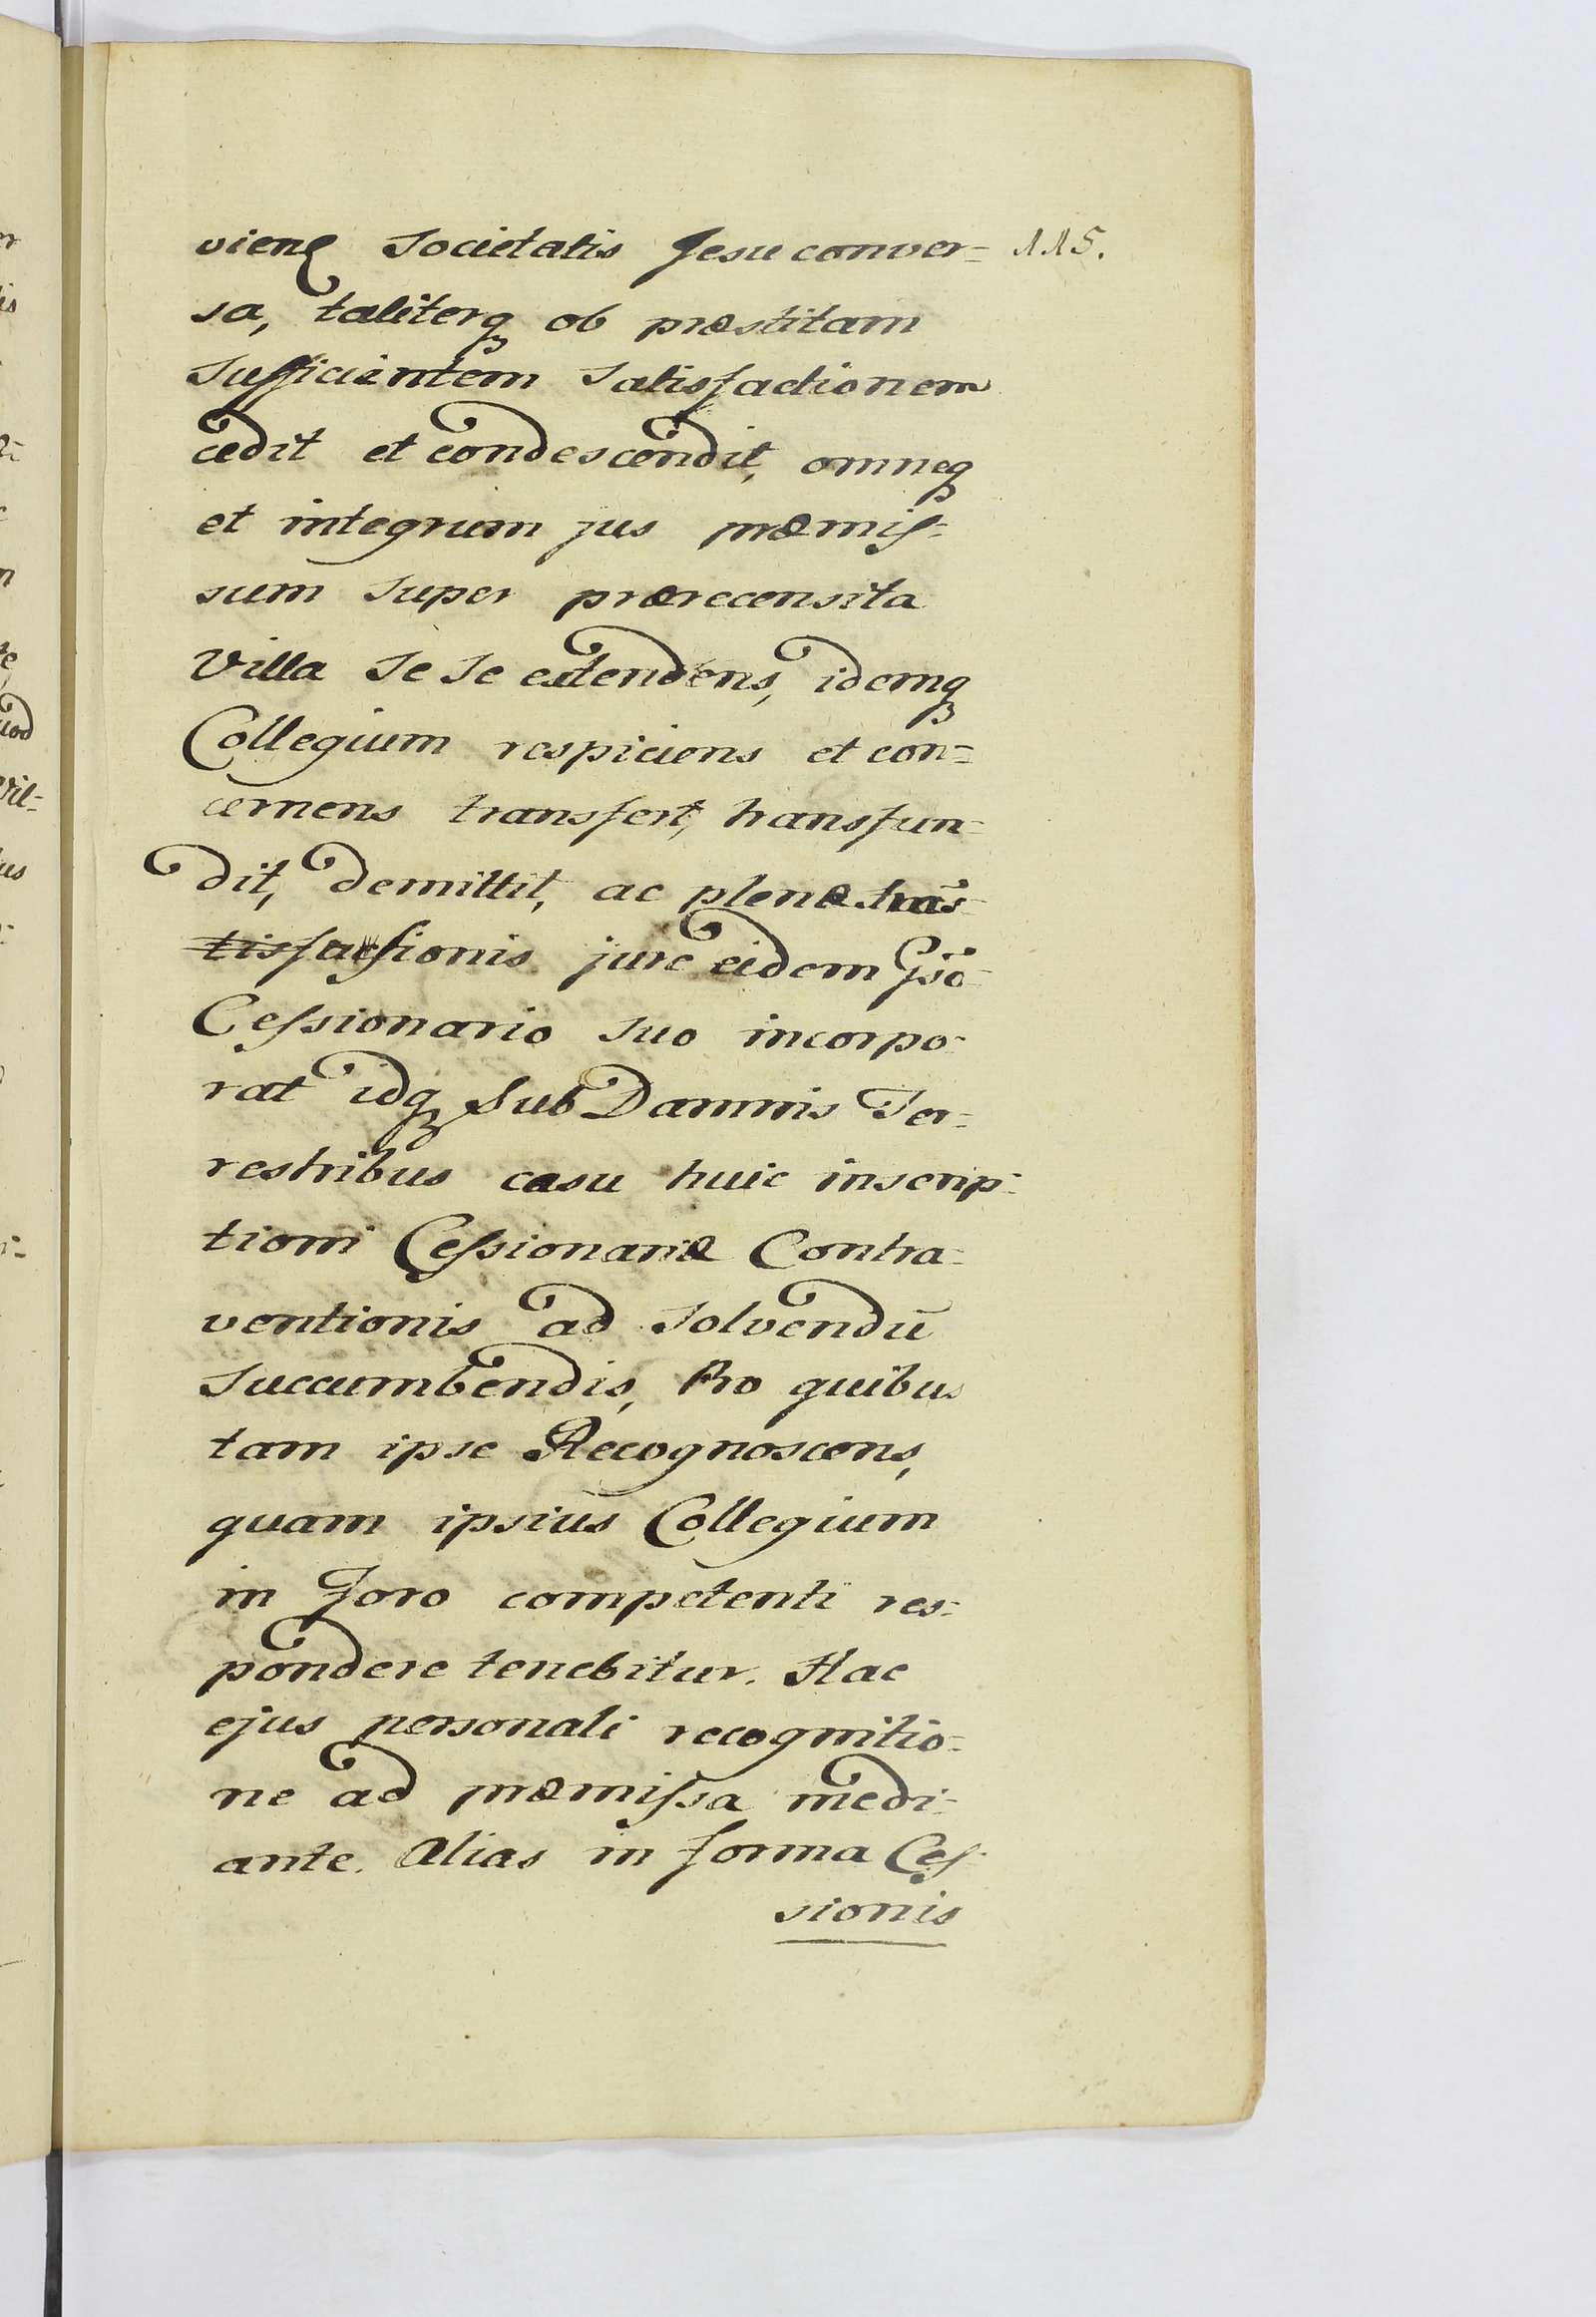 viens Societatis Jesu conver= 115.
sa, taliterq ob præstitam
Sufficientem Satisfactionem
cedit et condescendit, omneq
et integrum jus præmis=
sum Super prærecensita
Villa Se Se extendens, idemq
Collegium respiciens et con=
cernens transfert, transfun=
dit, demittit, ac plenæ trās=
tisfacsionis jure eidem Gsō
Cessionario Suo incorpo=
rat idq Sub Damnis Ter=
restribus casu huic inscrip=
tioni Cessionariæ Contra=
ventionis ad Solvendū
Succumbendis, Pro quibus
tam ipse Recognoscens,
quam ipsius Collegium
in Foro competenti res=
pondere tenebitur. Hac
ejus personali recognitio=
ne ad præmissa medi=
ante. Alias in forma Ces=
sionis